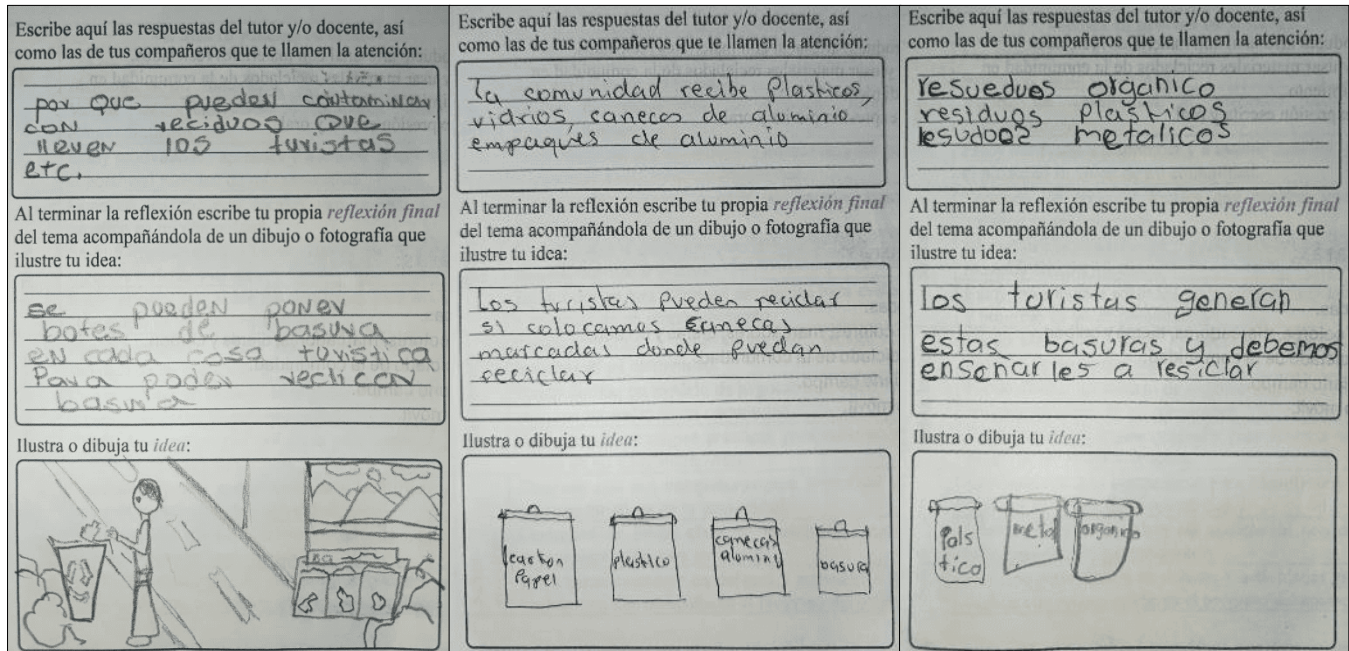 Escribe aquí las respuestas del tutor y/o docente, así
como las de tus compañeros que te llamen la atención:
por que pueden contaminar
con reciduos que
lleven los turistas
etc.
Al terminar la reflexión escribe tu propia reflexión final
del tema acompañándola de un dibujo o fotografía que
ilustre tu idea:
se pueden poner
botes de basura
en cada cosa turistica
Para poder reclicar
basura
Ilustra o dibuja tu idea:
Escribe aquí las respuestas del tutor y/o docente, así
como las de tus compañeros que te llamen la atención:
la comunidad recibe Plasticos,
vidrios, canecas de aluminio
empaques de aluminio
Al terminar la reflexión escribe tu propia reflexión final
del tema acompañándola de un dibujo o fotografía que
ilustre tu idea:
los turistas pueden reciclar
si colocamos canecas
marcadas donde puedan
reciclar
Ilustra o dibuja tu idea:
carton
Papel
plastico
canecas
alumini
basura
Escribe aquí las respuestas del tutor y/o docente, así
como las de tus compañeros que te llamen la atención:
resueduos organico
residuos plasticos
resudoos metalicos
Al terminar la reflexión escribe tu propia reflexión final
del tema acompañándola de un dibujo o fotografía que
ilustre tu idea:
los turistas generan
estas basuras y debemos
enseñarles a resiclar
Ilustra o dibuja tu idea:
Pals
tico
metal
organico